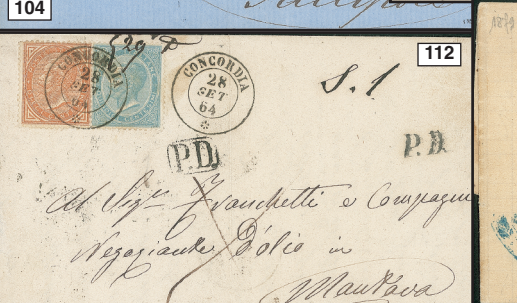 104
112
29
CONCORDIA
28
SET
64
CONCORDIA
28
SET
64
S. 1
P.D.
P.D.
Al Sigr Franchetti e Compagni
Negoziante D'olio in
Mantova